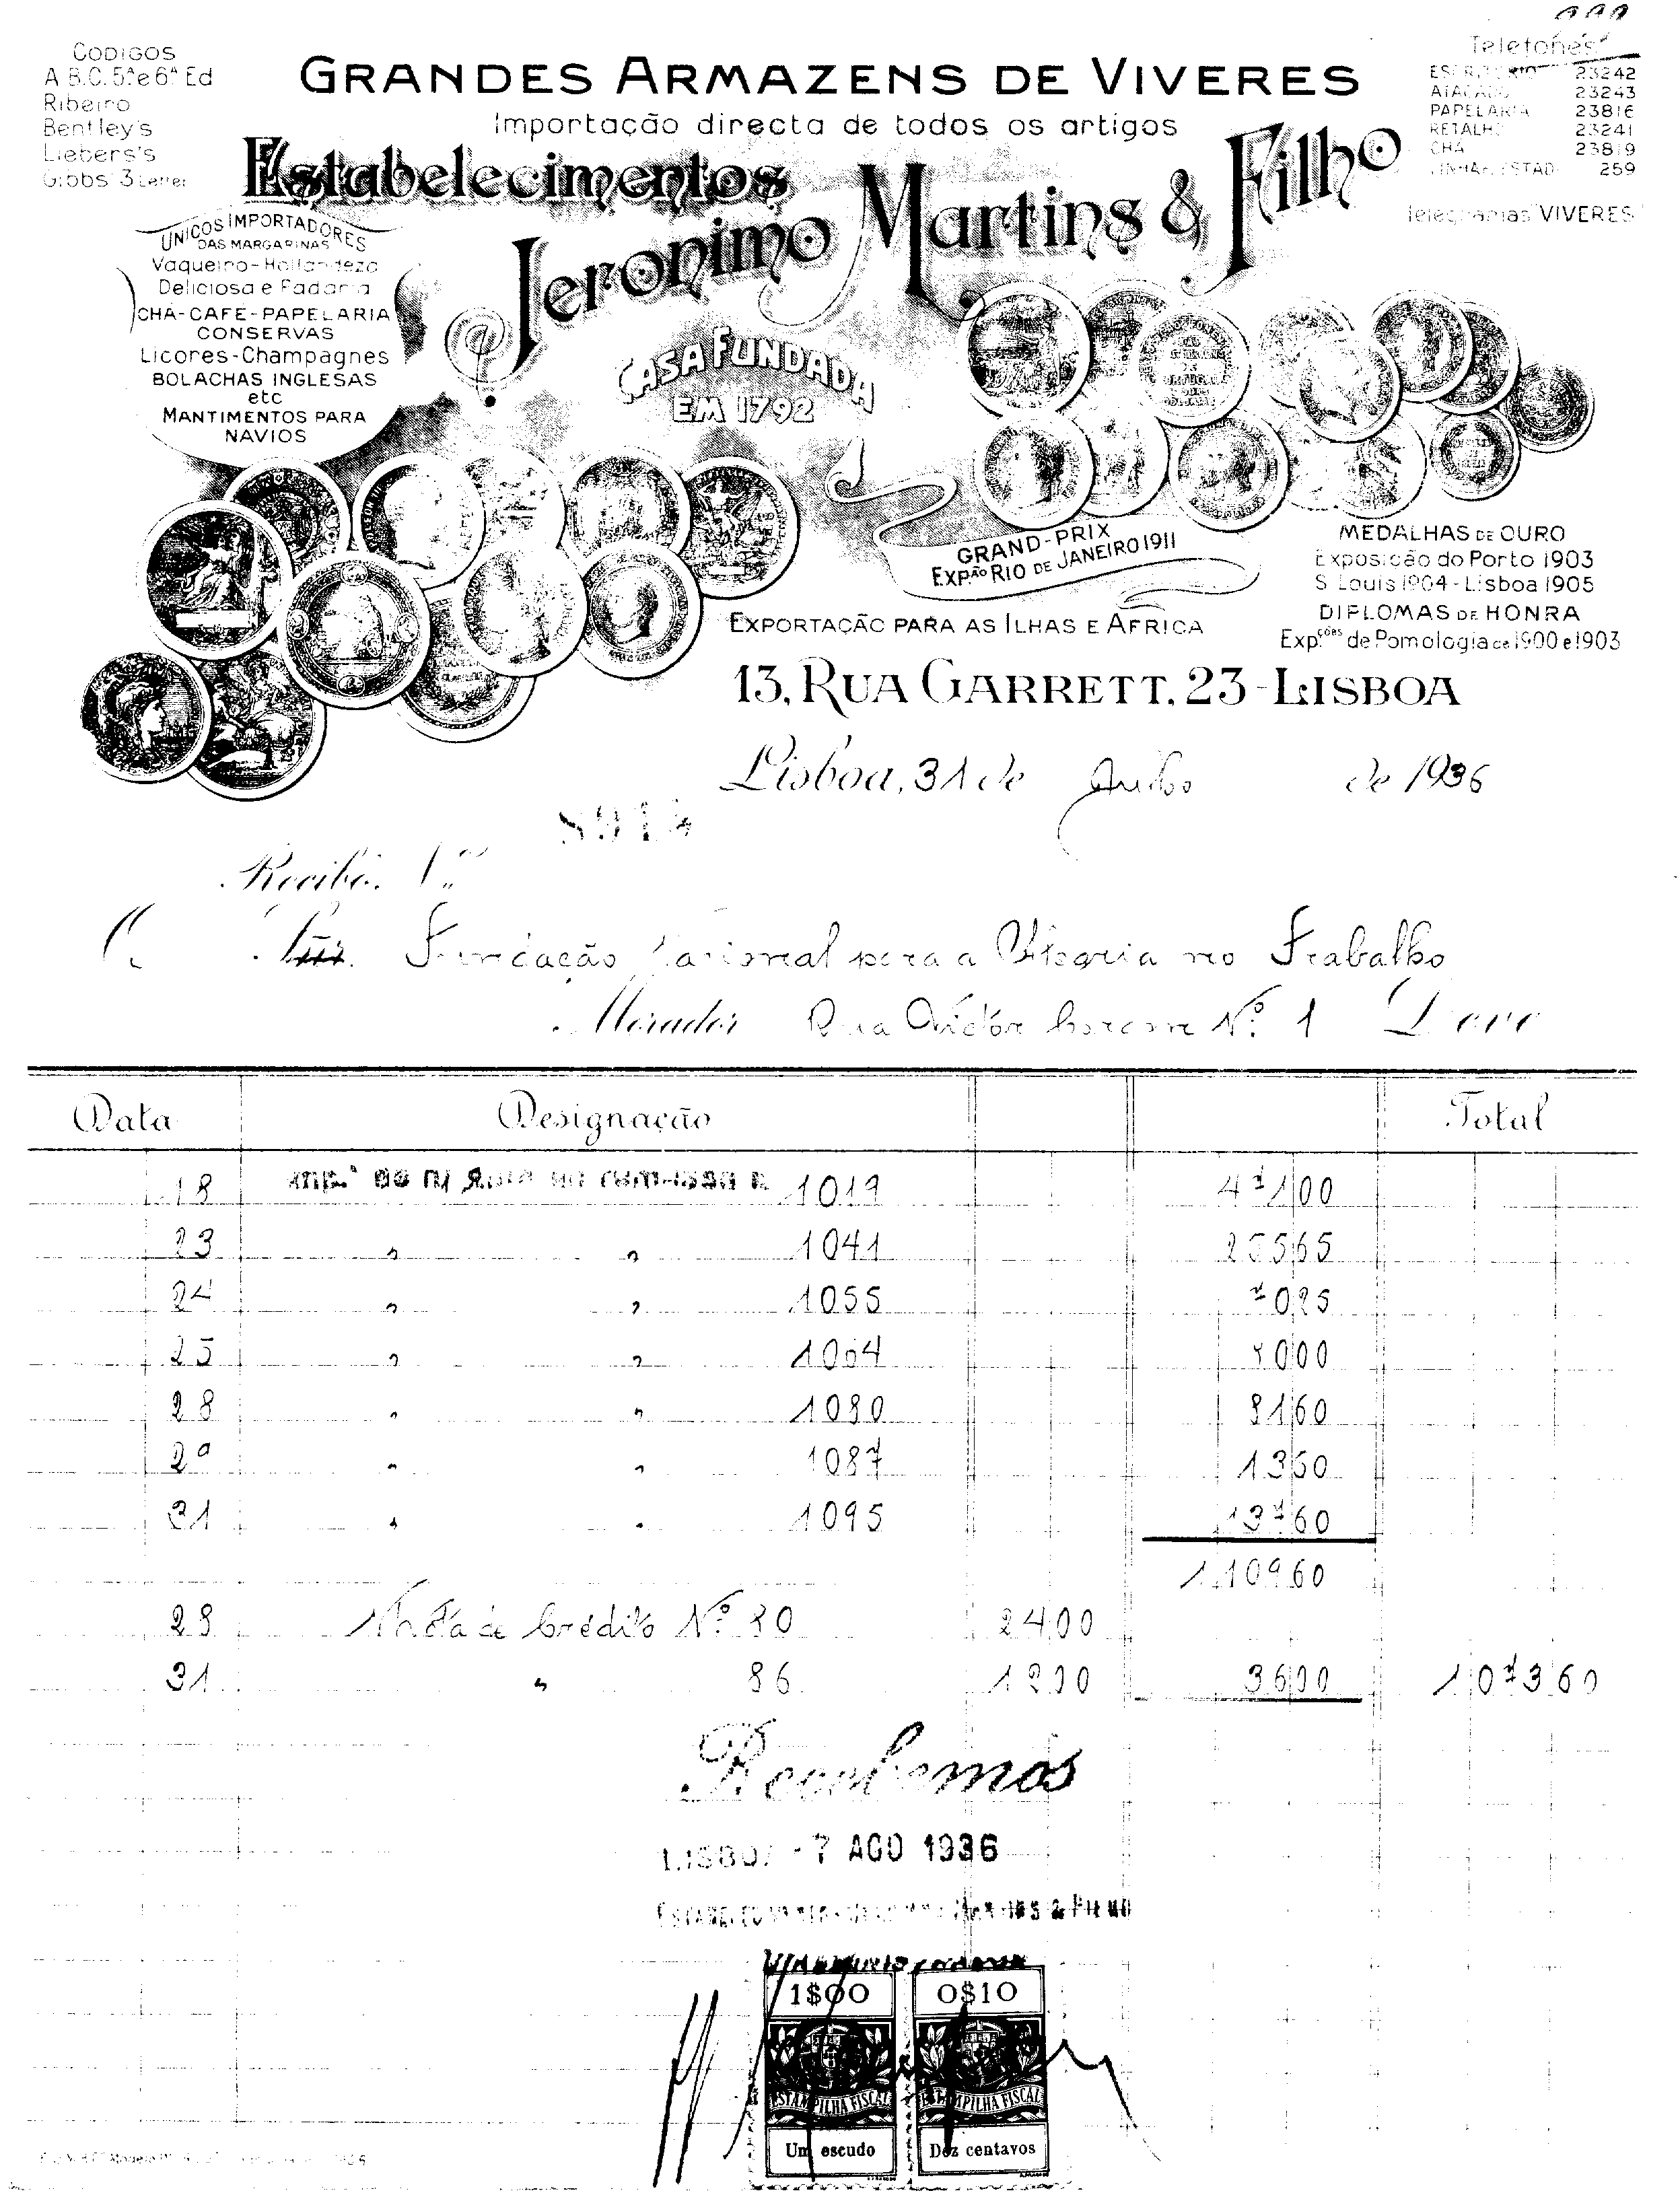 CODIGOS
A.B.C. 5ª e 6ª Ed
Ribeiro
Bentley's
Liebers's
GRANDES ARMAZENS DE VIVERES
Importação directa de todos os artigos
Estabelecimentos
Jeronimo Martins & Filho
Telefones
ESCRITORIO 23242
ATACADO 23243
PAPELARIA 23816
RETALHO 23241
CHÁ 23819
259
Telegramas "VIVERES"
UNICOS IMPORTADORES
DAS MARGARINAS
Vaqueiro-Hollandeza
Deliciosa e Fadaria
CHÁ-CAFÉ-PAPELARIA
CONSERVAS
Licores-Champagnes
BOLACHAS INGLESAS
etc
MANTIMENTOS PARA
NAVIOS
CASA FUNDADA
EM 1792
GRAND-PRIX
EXP.ÃO RIO DE JANEIRO 1911
MEDALHAS DE OURO
Exposição do Porto 1903
S. Louis 1904-Lisboa 1905
DIPLOMAS DE HONRA
Exp.ções de Pomologia de 1900 e 1903
EXPORTAÇÃO PARA AS ILHAS E AFRICA
13, RUA GARRETT, 23-LISBOA
Lisboa, 31 de Julho de 1936
Recibo N.º
Fundação Nacional para a Alegria no Trabalho
Morador Rua Victor Nº 1 Deve
Data Designação Total
18 1019
23 " " 1041
24 " " 1055
25 " " 1064
28 " " 1080 8160
29 " " 1087 1360
31 " " 1095 13760
110960
28 Nota de Crédito Nº 80 2400
31 " 86 1200 3600 107360
Recebemos
LISBOA -7 AGO 1936
ESTABELECIMENTOS JERONIMO MARTINS & FILHO
1$00 0$10
ESTAMPILHA FISCAL ESTAMPILHA FISCAL
Um escudo Dez centavos